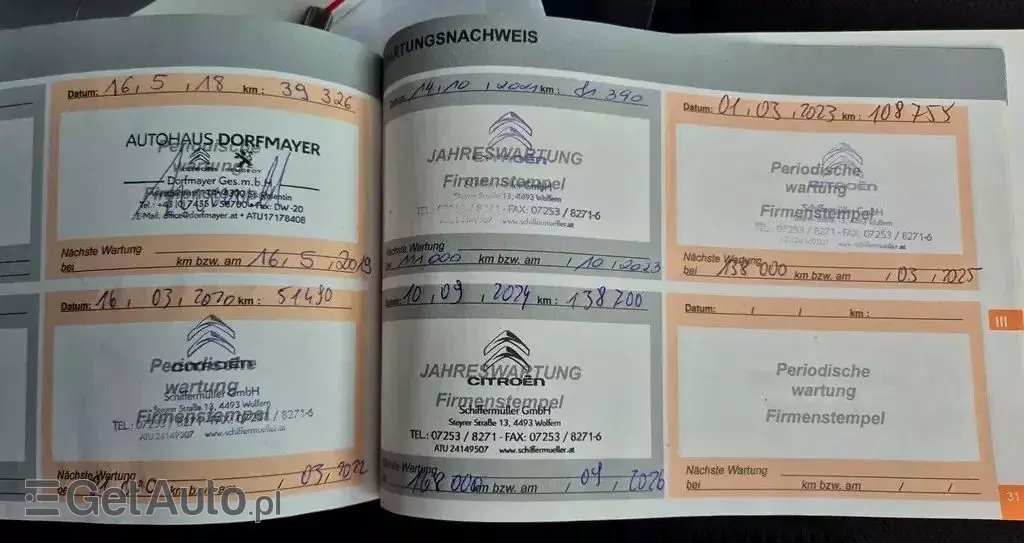 WARTUNGSNACHWEIS
Datum: 16, 5, 18 km: 39 326
AUTOHAUS DORFMAYER
Periodische
wartung
Dorfmayer Ges.m.b.H.
Firmenstempel
E-Mail: office@dorfmayer.at • ATU17178408
Nächste Wartung
bei km bzw. am 16, 5, 2019
Datum: 16, 03, 2020 km: 51490
Periodische
CITROËN
wartung
Schiffermüller GmbH
Steyrer Straße 13, 4493 Wolfern
Firmenstempel
TEL.: 07253 / 8271 - FAX: 07253 / 8271-6
ATU 24149507 www.schiffermueller.at
Nächste Wartung
km bzw. am , 03, 2022
14, 10, 2021 km: 81.390
JAHRESWARTUNG
CITROËN
Firmenstempel
Steyrer Straße 13, 4493 Wolfern
TEL.: 07253 / 8271 - FAX: 07253 / 8271-6
ATU 24149507 www.schiffermueller.at
Nächste Wartung
bei 111 000 km bzw. am , 10, 2023
Datum: 10, 09, 2024 km: 138 200
JAHRESWARTUNG
CITROËN
Firmenstempel
Schiffermüller GmbH
Steyrer Straße 13, 4493 Wolfern
TEL.: 07253 / 8271 - FAX: 07253 / 8271-6
ATU 24149507 www.schiffermueller.at
Nächste Wartung
bei 168 000 km bzw. am , 09, 2026
Datum: 01, 03, 2023 km: 108 755
Periodische
wartung
CITROËN
Firmenstempel
TEL.: 07253 / 8271 - FAX: 07253 / 8271-6
www.schiffermueller.at
Nächste Wartung
bei 138 000 km bzw. am , 03, 2025
Datum: / / km:
Periodische
wartung
Firmenstempel
Nächste Wartung
bei km bzw. am / /
III
31
GetAuto.pl